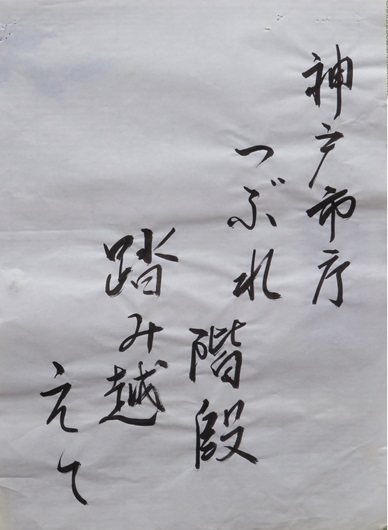 神戸市庁
つぶれ
階段
踏み越
えて